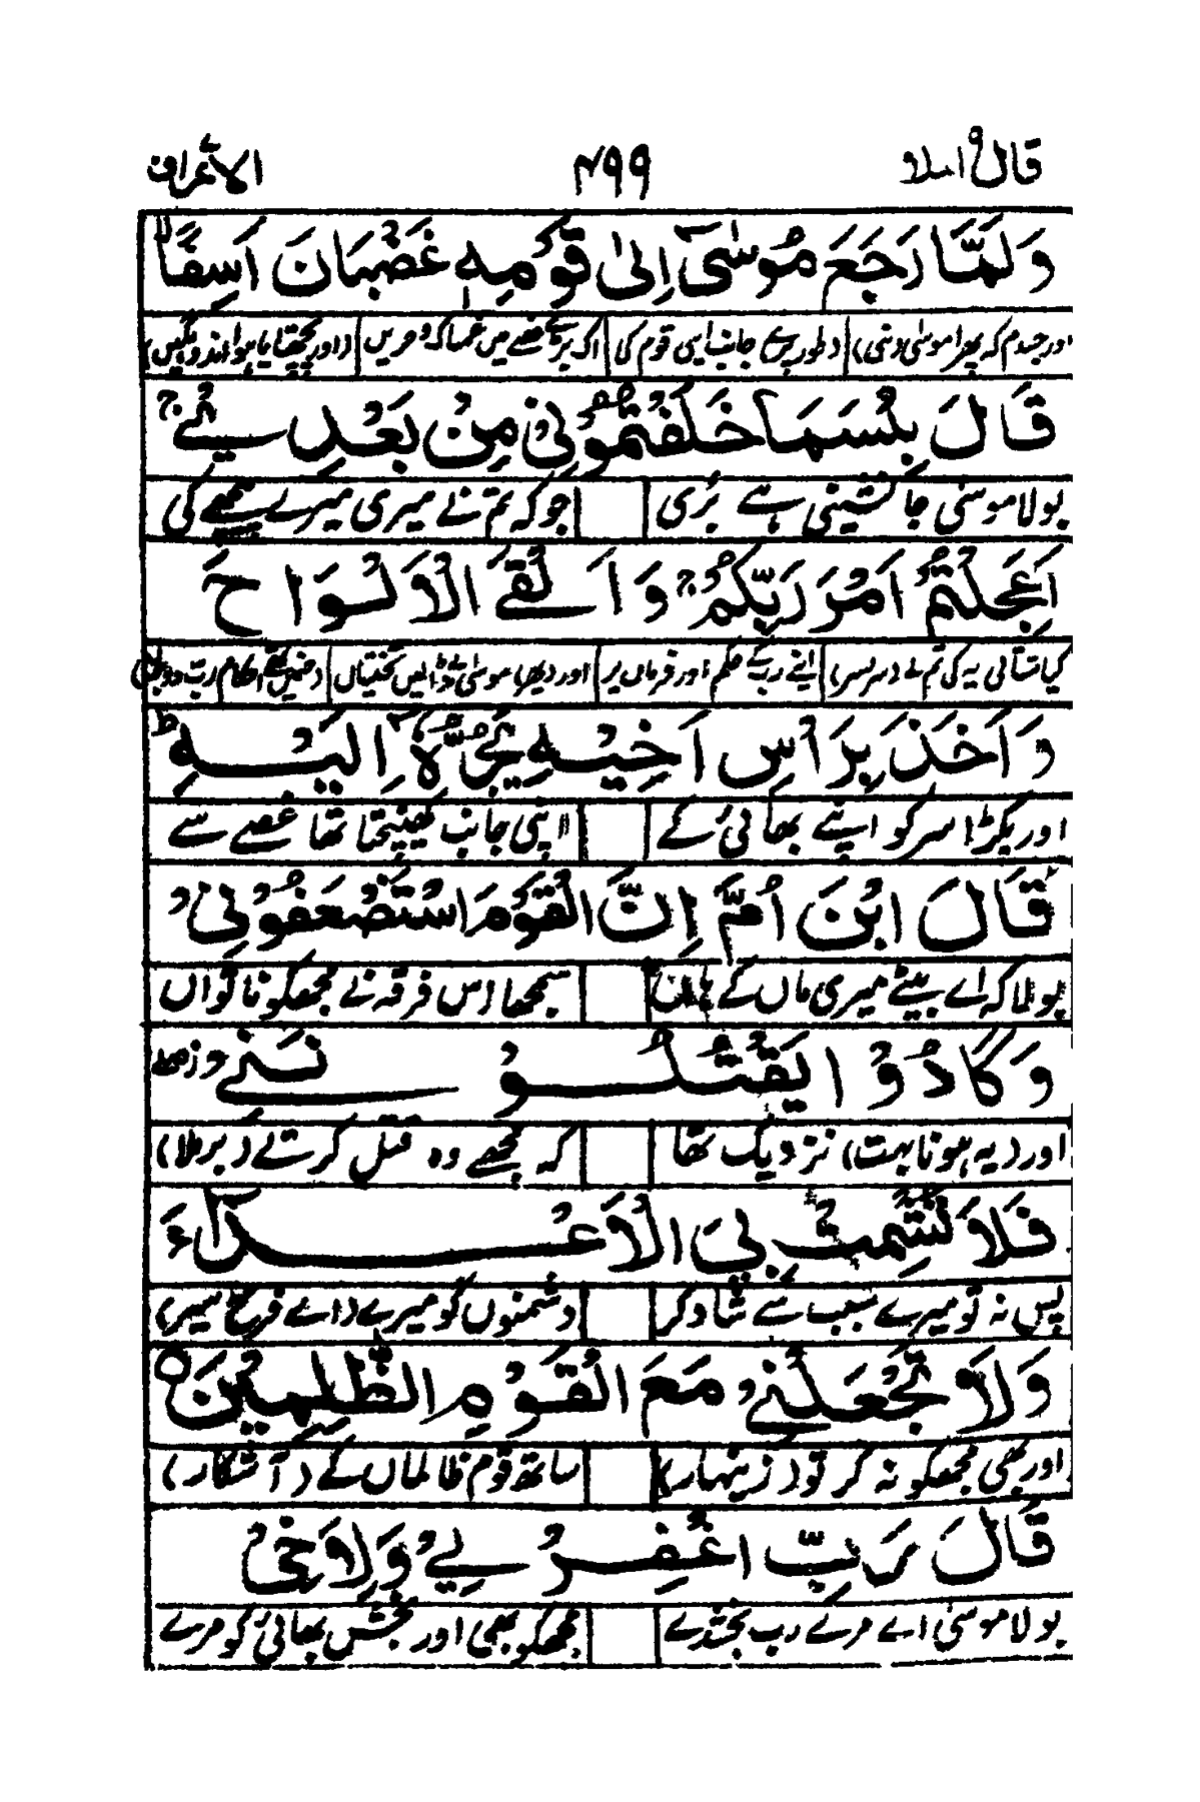 قال الملا ۹ ۴۹۹ الاعراف ۷
وَلَمَّا رَجَعَ مُوسٰٓى اِلٰى قَوْمِهٖ غَضْبَانَ اَسِفًا ۙ
اور جسدم کہ پھرا موسیٰ (نبی) جانب اپنی قوم کی اک بڑے غصے میں
قَالَ بِئْسَمَا خَلَفْتُمُوْنِيْ مِنْۢ بَعْدِيْ ۚ
بولا موسیٰ جانشینی ہے بُری جو کہ تم نے میری میرے پیچھے کی
اَعَجِلْتُمْ اَمْرَ رَبِّكُمْ ۚ وَاَلْقَى الْاَلْوَاحَ
کیا شتابی یہ کی تم نے (سرسر) اپنے رب کے حکم اور فرماں پر اور موسیٰ نے ڈالیں تختیاں
وَاَخَذَ بِرَاْسِ اَخِيْهِ يَجُرُّهٗٓ اِلَيْهِ ؕ
اور پکڑا سر کو اپنے بھائی کے اپنی جانب کھینچتا تھا غصے سے
قَالَ ابْنَ اُمَّ اِنَّ الْقَوْمَ اسْتَضْعَفُوْنِيْ
بولا کہ اے بیٹے میری ماں کے سمجھا اس فرقہ نے مجھکو ناتواں
وَكَادُوْا يَقْتُلُوْنَنِيْ ۖ
اور (یہ ہونا بہت) نزدیک تھا کہ مجھے وہ قتل کرتے (برملا)
فَلَا تُشْمِتْ بِيَ الْاَعْدَآءَ
پس نہ تو میرے سبب سے شاد کر دشمنوں کو میرے (اے فرخ سیر)
وَلَا تَجْعَلْنِيْ مَعَ الْقَوْمِ الظّٰلِمِيْنَ ○
اور بھی مجھکو نہ کر تو (زینہار) ساتھ قوم ظالماں کے (آشکار)
قَالَ رَبِّ اغْفِرْ لِيْ وَلِاَخِيْ
بولا موسیٰ اے مرے رب بخشدے مجھکو بھی اور بخش بھائی کو مرے